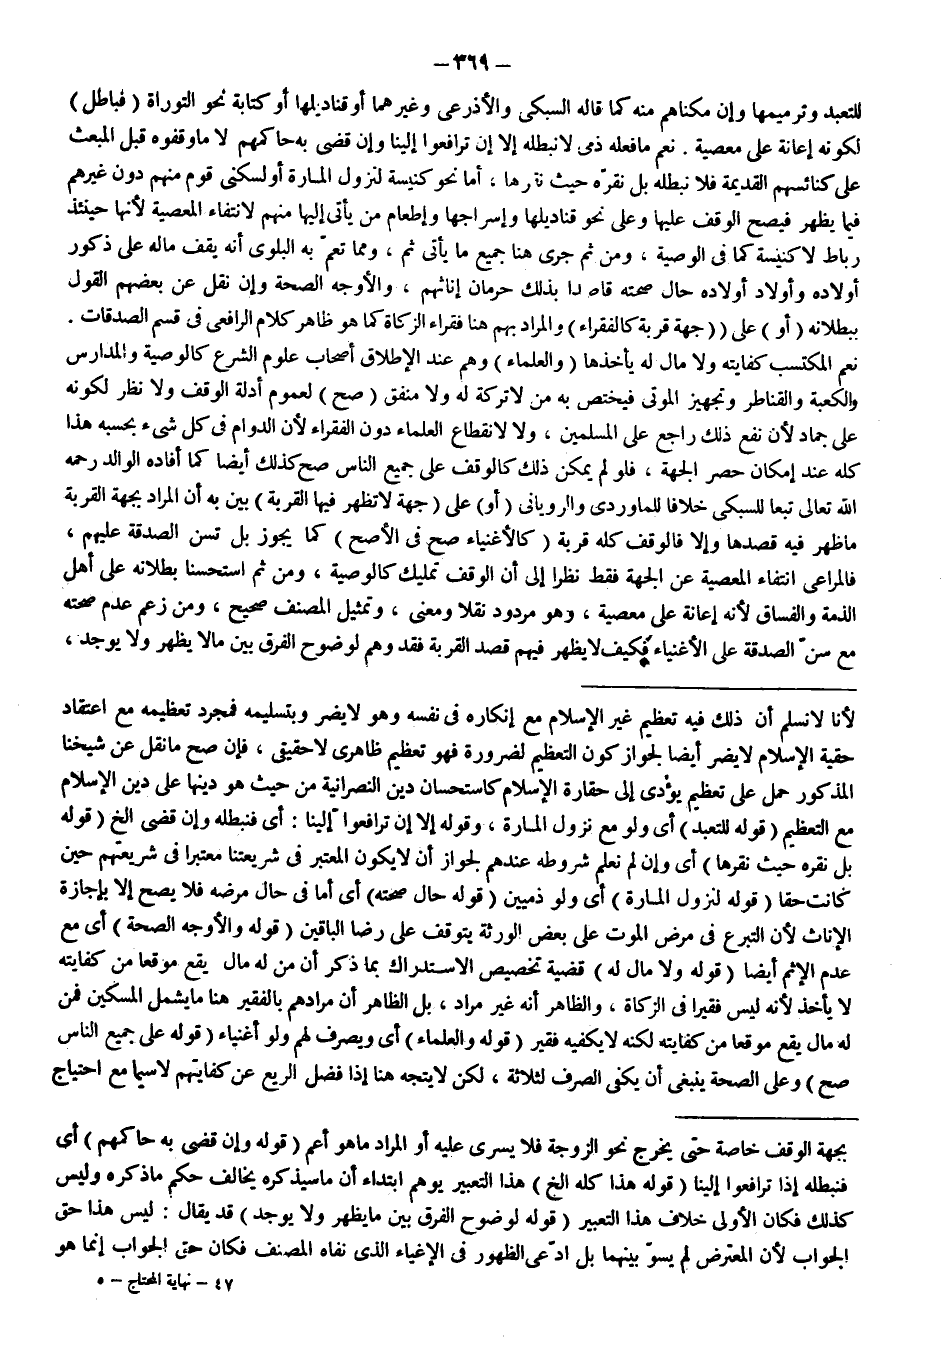 - ٣٦٩ -
للتعبد وترميمها وإن مكناهم منه كما قاله السبكى والأذرعى وغيرهما أو قناديلها أو كتابة نحو التوراة ( فباطل )
لكونه إعانة على معصية . نعم مافعله ذمى لانبطله إلا إن ترافعوا إلينا وإن قضى به حاكمهم لا ماوقفوه قبل المبعث
على كنائسهم القديمة فلا نبطله بل نقرّه حيث نقرها ، أما نحو كنيسة لنزول المارة أو لسكنى قوم منهم دون غيرهم
فيما يظهر فيصح الوقف عليها وعلى نحو قناديلها وإسراجها وإطعام من يأتى إليها منهم لانتفاء المعصية لأنها حينئذ
رباط لا كنيسة كما فى الوصية ، ومن ثم جرى هنا جميع ما يأتى ثم ، ومما تعمّ به البلوى أنه يقف ماله على ذكور
أولاده وأولاد أولاده حال صحته قاصدا بذلك حرمان إناثهم ، والأوجه الصحة وإن نقل عن بعضهم القول
ببطلانه ( أو ) على ( ( جهة قربة كالفقراء ) والمراد بهم هنا فقراء الزكاة كما هو ظاهر كلام الرافعى فى قسم الصدقات .
نعم المكتسب كفايته ولا مال له يأخذها ( والعلماء ) وهم عند الإطلاق أصحاب علوم الشرع كالوصية والمدارس
والكعبة والقناطر وتجهيز الموتى فيختص به من لاتركة له ولا منفق ( صح ) لعموم أدلة الوقف ولا نظر لكونه
على جماد لأن نفع ذلك راجع على المسلمين ، ولا لانقطاع العلماء دون الفقراء لأن الدوام فى كل شىء بحسبه هذا
كله عند إمكان حصر الجهة ، فلو لم يمكن ذلك كالوقف على جميع الناس صح كذلك أيضا كما أفاده الوالد رحمه
الله تعالى تبعا للسبكى خلافا للماوردى والرويانى ( أو ) على ( جهة لاتظهر فيها القربة ) بين به أن المراد بجهة القربة
ماظهر فيه قصدها وإلا فالوقف كله قربة ( كالأغنياء صح فى الأصح ) كما يجوز بل تسن الصدقة عليهم ،
فالمراعى انتفاء المعصية عن الجهة فقط نظرا إلى أن الوقف تمليك كالوصية ، ومن ثم استحسنا بطلانه على أهل
الذمة والفساق لأنه إعانة على معصية ، وهو مردود نقلا ومعنى ، وتمثيل المصنف صحيح ، ومن زعم عدم صحته
مع سنّ الصدقة على الأغنياء فكيف لايظهر فيهم قصد القربة فقد وهم لوضوح الفرق بين مالا يظهر ولا يوجد ،
لأنا لانسلم أن ذلك فيه تعظيم غير الإسلام مع إنكاره فى نفسه وهو لايضر وبتسليمه فمجرد تعظيمه مع اعتقاد
حقية الإسلام لايضر أيضا لجواز كون التعظيم لضرورة فهو تعظيم ظاهرى لاحقيقى ، فإن صح مانقل عن شيخنا
المذكور حمل على تعظيم يؤدى إلى حقارة الإسلام كاستحسان دين النصرانية من حيث هو دينها على دين الإسلام
مع التعظيم ( قوله للتعبد ) أى ولو مع نزول المارة ، وقوله إلا إن ترافعوا إلينا : أى فنبطله وإن قضى الخ ( قوله
بل نقره حيث نقرها ) أى وإن لم نعلم شروطه عندهم لجواز أن لايكون المعتبر فى شريعتنا معتبرا فى شريعتهم حين
كانت حقا ( قوله لنزول المارة ) أى ولو ذميين ( قوله حال صحته) أى أما فى حال مرضه فلا يصح إلا بإجازة
الإناث لأن التبرع فى مرض الموت على بعض الورثة يتوقف على رضا الباقين ( قوله والأوجه الصحة ) أى مع
عدم الإثم أيضا ( قوله ولا مال له ) قضية تخصيص الاستدراك بما ذكر أن من له مال يقع موقعا من كفايته
لا يأخذ لأنه ليس فقيرا فى الزكاة ، والظاهر أنه غير مراد ، بل الظاهر أن مرادهم بالفقير هنا مايشمل المسكين فمن
له مال يقع موقعا من كفايته لكنه لايكفيه فقير ( قوله والعلماء ) أى ويصرف لهم ولو أغنياء ( قوله على جميع الناس
صح ) وعلى الصحة ينبغى أن يكفى الصرف لثلاثة ، لكن لايتجه هنا إذا فضل الريع عن كفايتهم لاسيما مع احتياج
بجهة الوقف خاصة حتى يخرج نحو الزوجة فلا يسرى عليه أو المراد ماهو أعم ( قوله وإن قضى به حاكمهم ) أى
فنبطله إذا ترافعوا إلينا ( قوله هذا كله الخ ) هذا التعبير يوهم ابتداء أن ماسيذكره يخالف حكم ماذكره وليس
كذلك فكان الأولى خلاف هذا التعبير ( قوله لوضوح الفرق بين مايظهر ولا يوجد ) قد يقال : ليس هذا حق
الجواب لأن المعترض لم يسوّ بينهما بل ادّعى الظهور فى الإغياء الذى نفاه المصنف فكان حق الجواب إنما هو
٤٧ - نهاية المحتاج - ٥